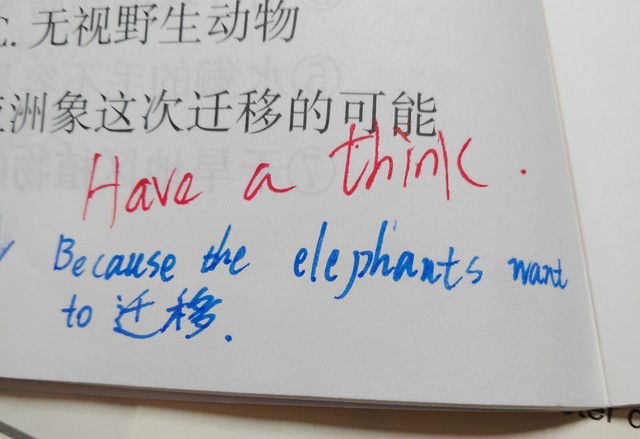 C. 无视野生动物
亚洲象这次迁移的可能
Have a think.
Because the elephants want
to 迁移.